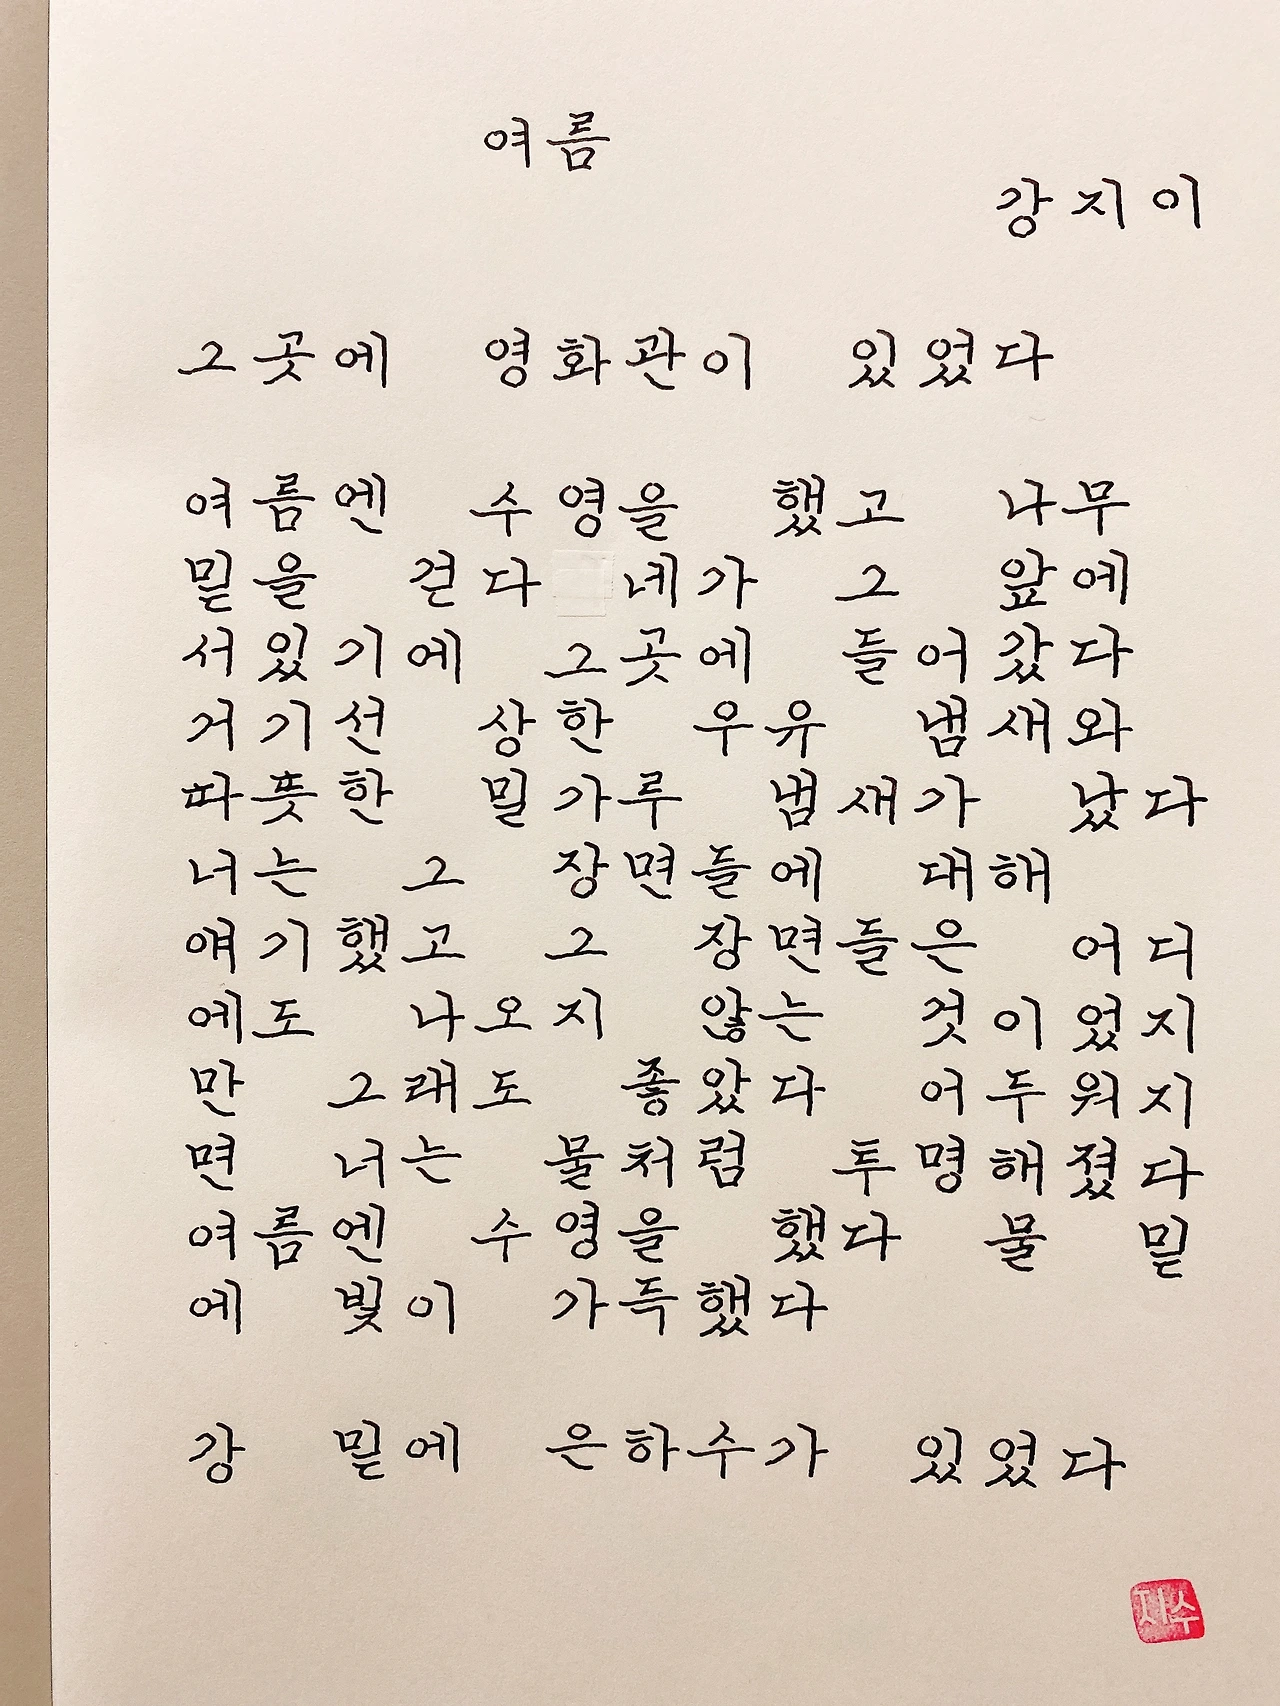 여름
강지이
그곳에 영화관이 있었다
여름엔 수영을 했고 나무
밑을 걷다 네가 그 앞에
서있기에 그곳에 들어갔다
거기선 상한 우유 냄새와
따뜻한 밀가루 냄새가 났다
너는 그 장면들에 대해
얘기했고 그 장면들은 어디
에도 나오지 않는 것이었지
만 그래도 좋았다 어두워지
면 너는 물처럼 투명해졌다
여름엔 수영을 했다 물 밑
에 빛이 가득했다
강 밑에 은하수가 있었다
지수